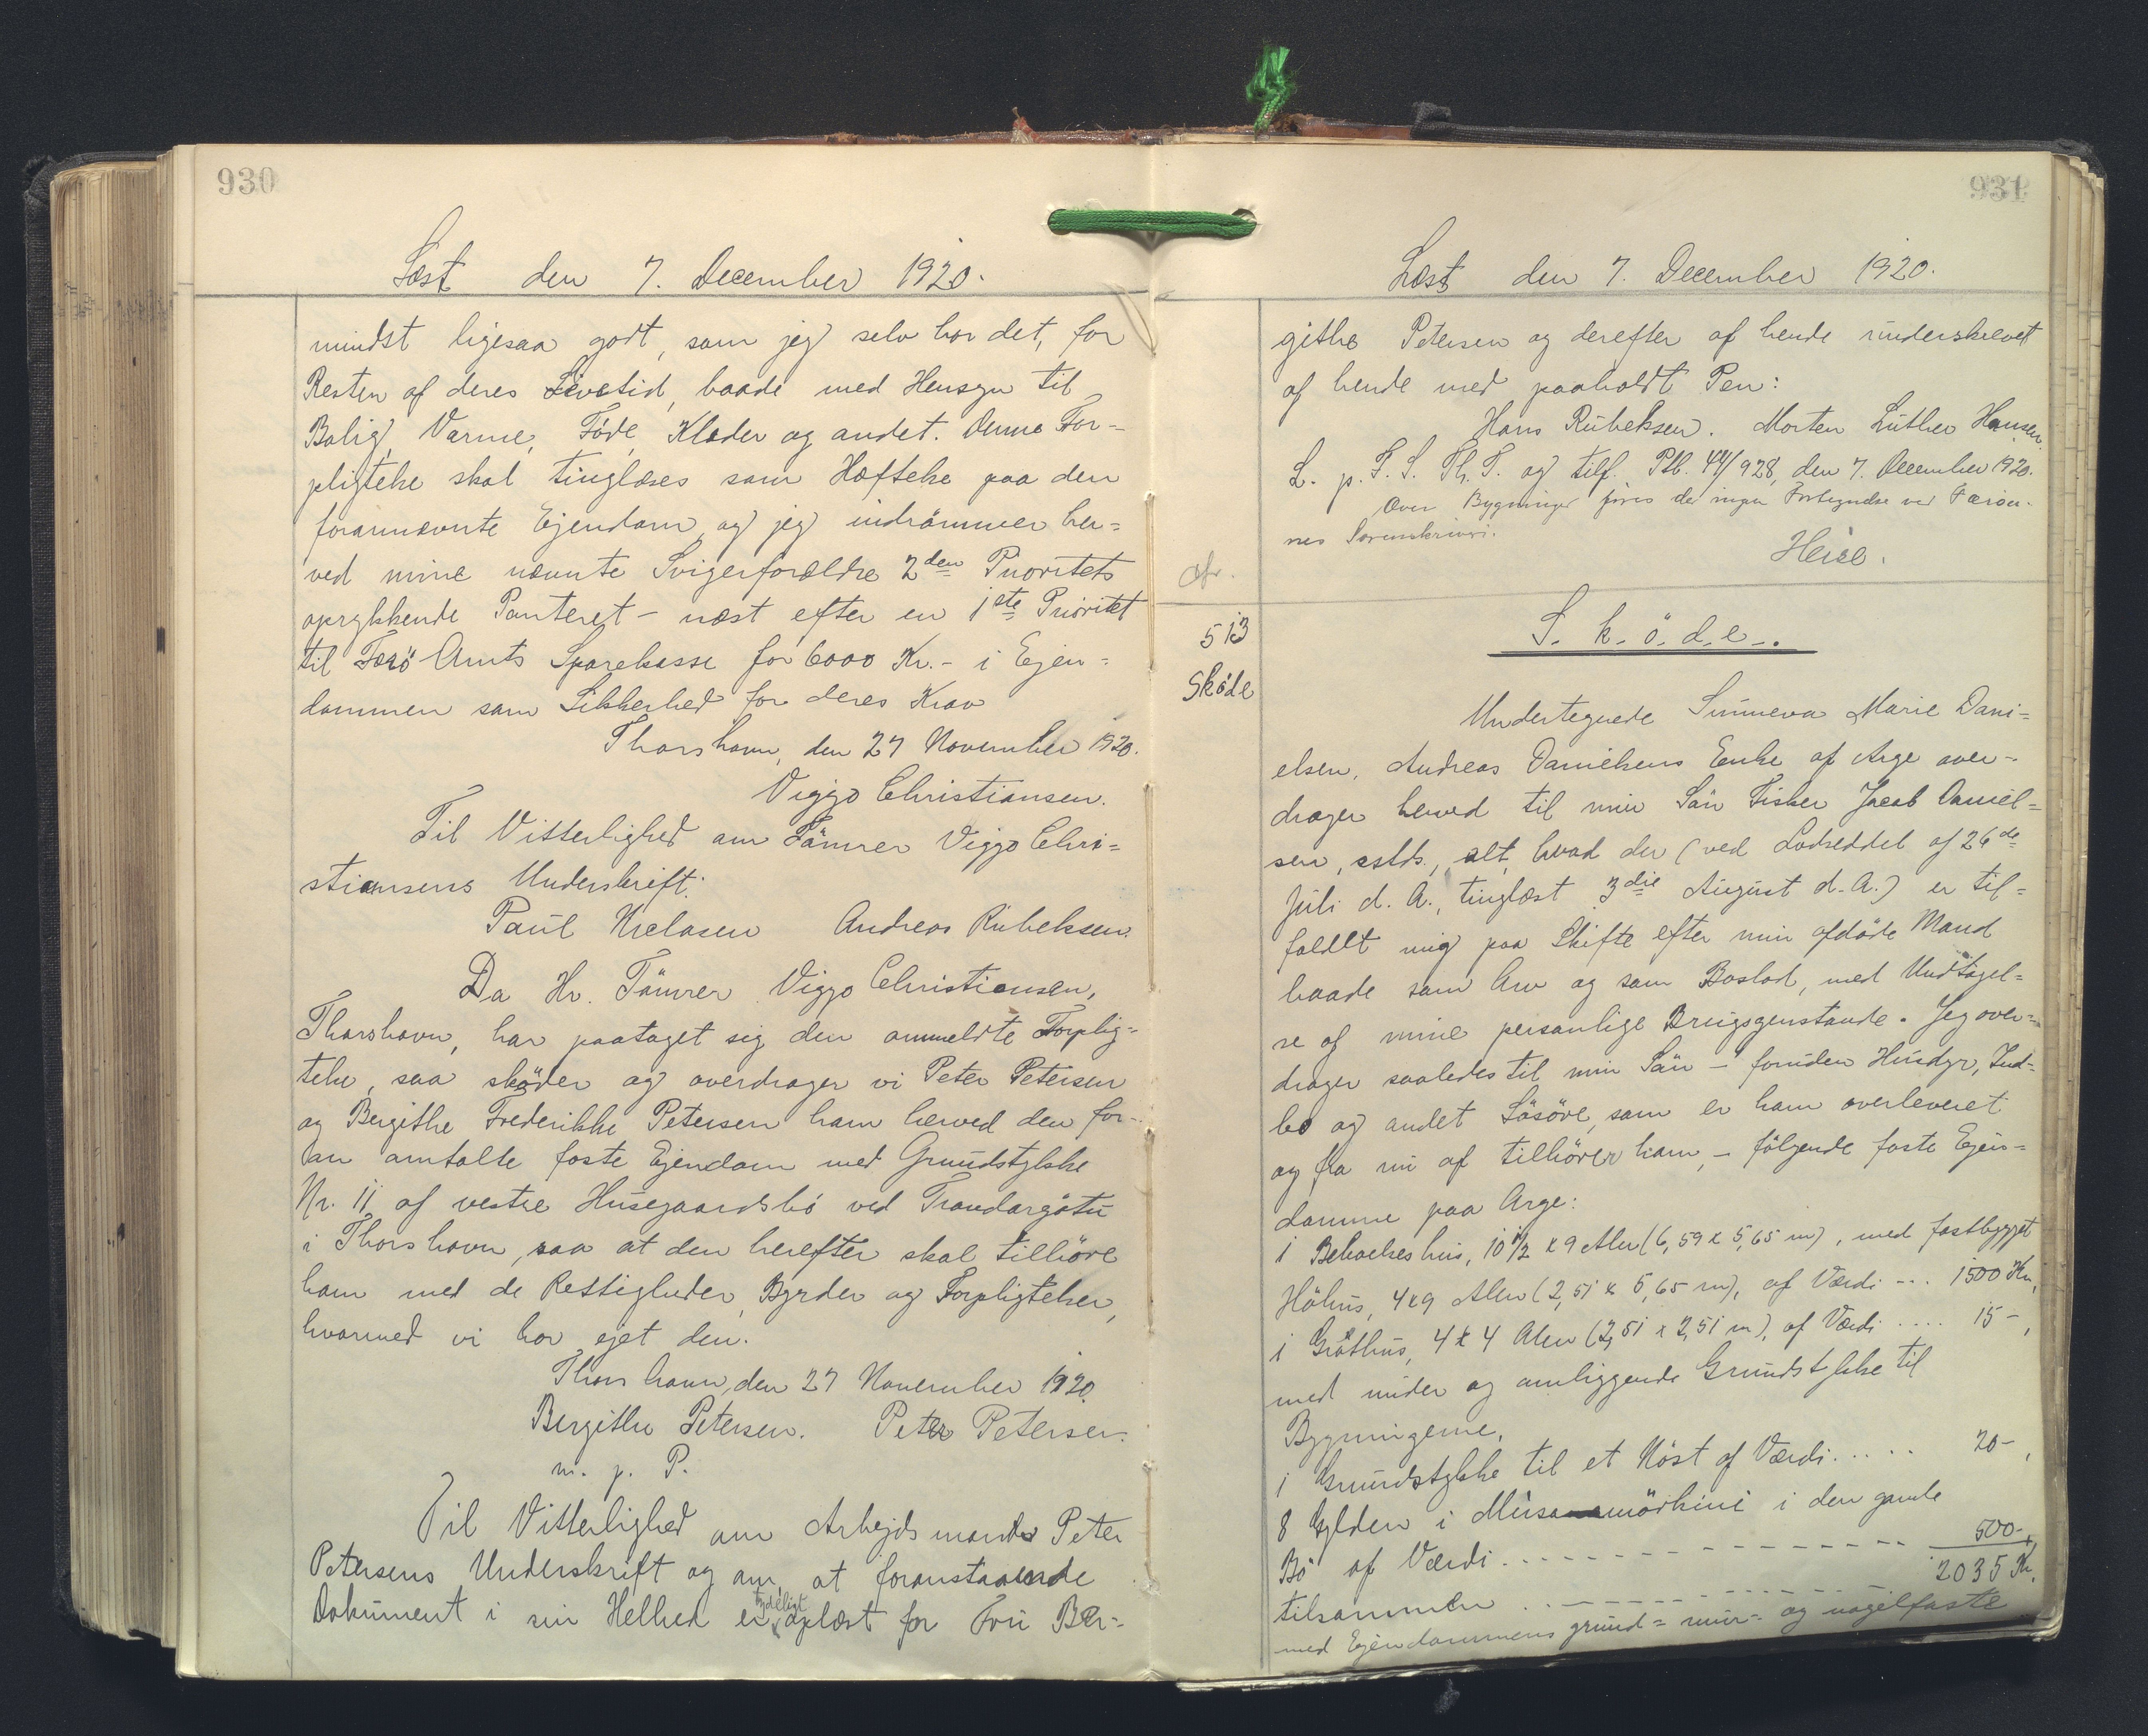 930
Læst den 7. December 1920.
mindst ligesaa godt, som jeg selv har det, for
Resten af deres Livstid, baade med Hensyn til
Bolig, Varme, Føde, Klæder og andet. Denne For-
pligtelse skal tinglæses som Hæftelse paa den
forannævnte Ejendom, og jeg indrömmer her-
ved mine nævnte Svigerforældre 2den Prioritets
oprykkende Panteret - næst efter en 1ste Prioritet
til Færö Amts Sparekasse for 6000 Kr. - i Ejen-
dommen som Sikkerhed for deres Krav
Thorshavn, den 27 November 1920.
Viggo Christiansen.
Til Vitterlighed om Tömrer Viggo Chri-
stiansens Underskrift:
Paul Nielsen Andreas Rubeksen.
Da Hr. Tömrer Viggo Christiansen,
Thorshavn, har paataget sig den ommeldte Forplig-
telse, saa sköder og overdrager vi Peter Petersen
og Bergithe Frederikke Petersen ham herved den for-
an omtalte faste Ejendom med Grundstykke
Nr. 11 af vestre Husegaardsbö ved Trondargötu
i Thorshavn, saa at den herefter skal tilhöre
ham med de Rettigheder, Byrder og Forpligtelser,
hvormed vi har ejet den.
Thorshavn, den 27 November 1920.
Bergithe Petersen. Peter Petersen.
m. p. P.
Til Vitterlighed om Arbejdsmands Peter
Petersens Underskrift og om, at foranstaaende
Dokument i sin Helhed er tydeligt oplæst for Fru Ber-
931
Læst den 7. December 1920.
githe Petersen og derefter af hende underskrevet
af hende med paaholdt Pen:
Hans Rubeksen. Morten Luther Hansen.
L. p. F. S. Th. T. og tilf. Ptb. 44/928, den 7. December 1920.
Over Bygninger föres der ingen Fortegnelse ved Færöer-
nes Sorenskriveri.
Heise.
Afr.
513
Sköde
S. k. ö. d. e.
Undertegnede Sunneva Marie Dani-
elsen, Andreas Danielsens Enke af Arge over-
drager herved til min Sön Fisker Jacob Daniel-
sen, sstds., alt, hvad der (ved Lodseddel af 26de
Juli d. A., tinglæst 3die August d. A.) er til-
faldet mig paa Skifte efter min afdöde Mand
baade som Arv og som Boslod, med Undtagel-
se af mine personlige Brugsgenstande. Jeg over-
drager saaledes til min Sön - foruden Husdyr, Ind-
bo og andet Lösöre, som er ham overleveret
og fra nu af tilhörer ham, - fölgende faste Ejen-
domme paa Arge:
1 Beboelseshus, 10½ x 9 Alen (6,59 x 5,65 m), med fastbygget
Höhus, 4x9 Alen (2,51 x 5,65 m), af Værdi --- 1500 Kr,
1 Gröthus, 4 x 4 Alen (2,51 x 2,51 m), af Værdi .... 15 -,
med under og omliggende Grundstykke til
Bygningerne,
1 Grundstykke til et Nöst af Værdi..... 20 -,
8 Gylden i Musamörkini i den gamle
Bö af Værdi ---------- 500 -,
tilsammen .. ---------- 2035 Kr.
med Ejendommens grund= mur= og nagelfaste